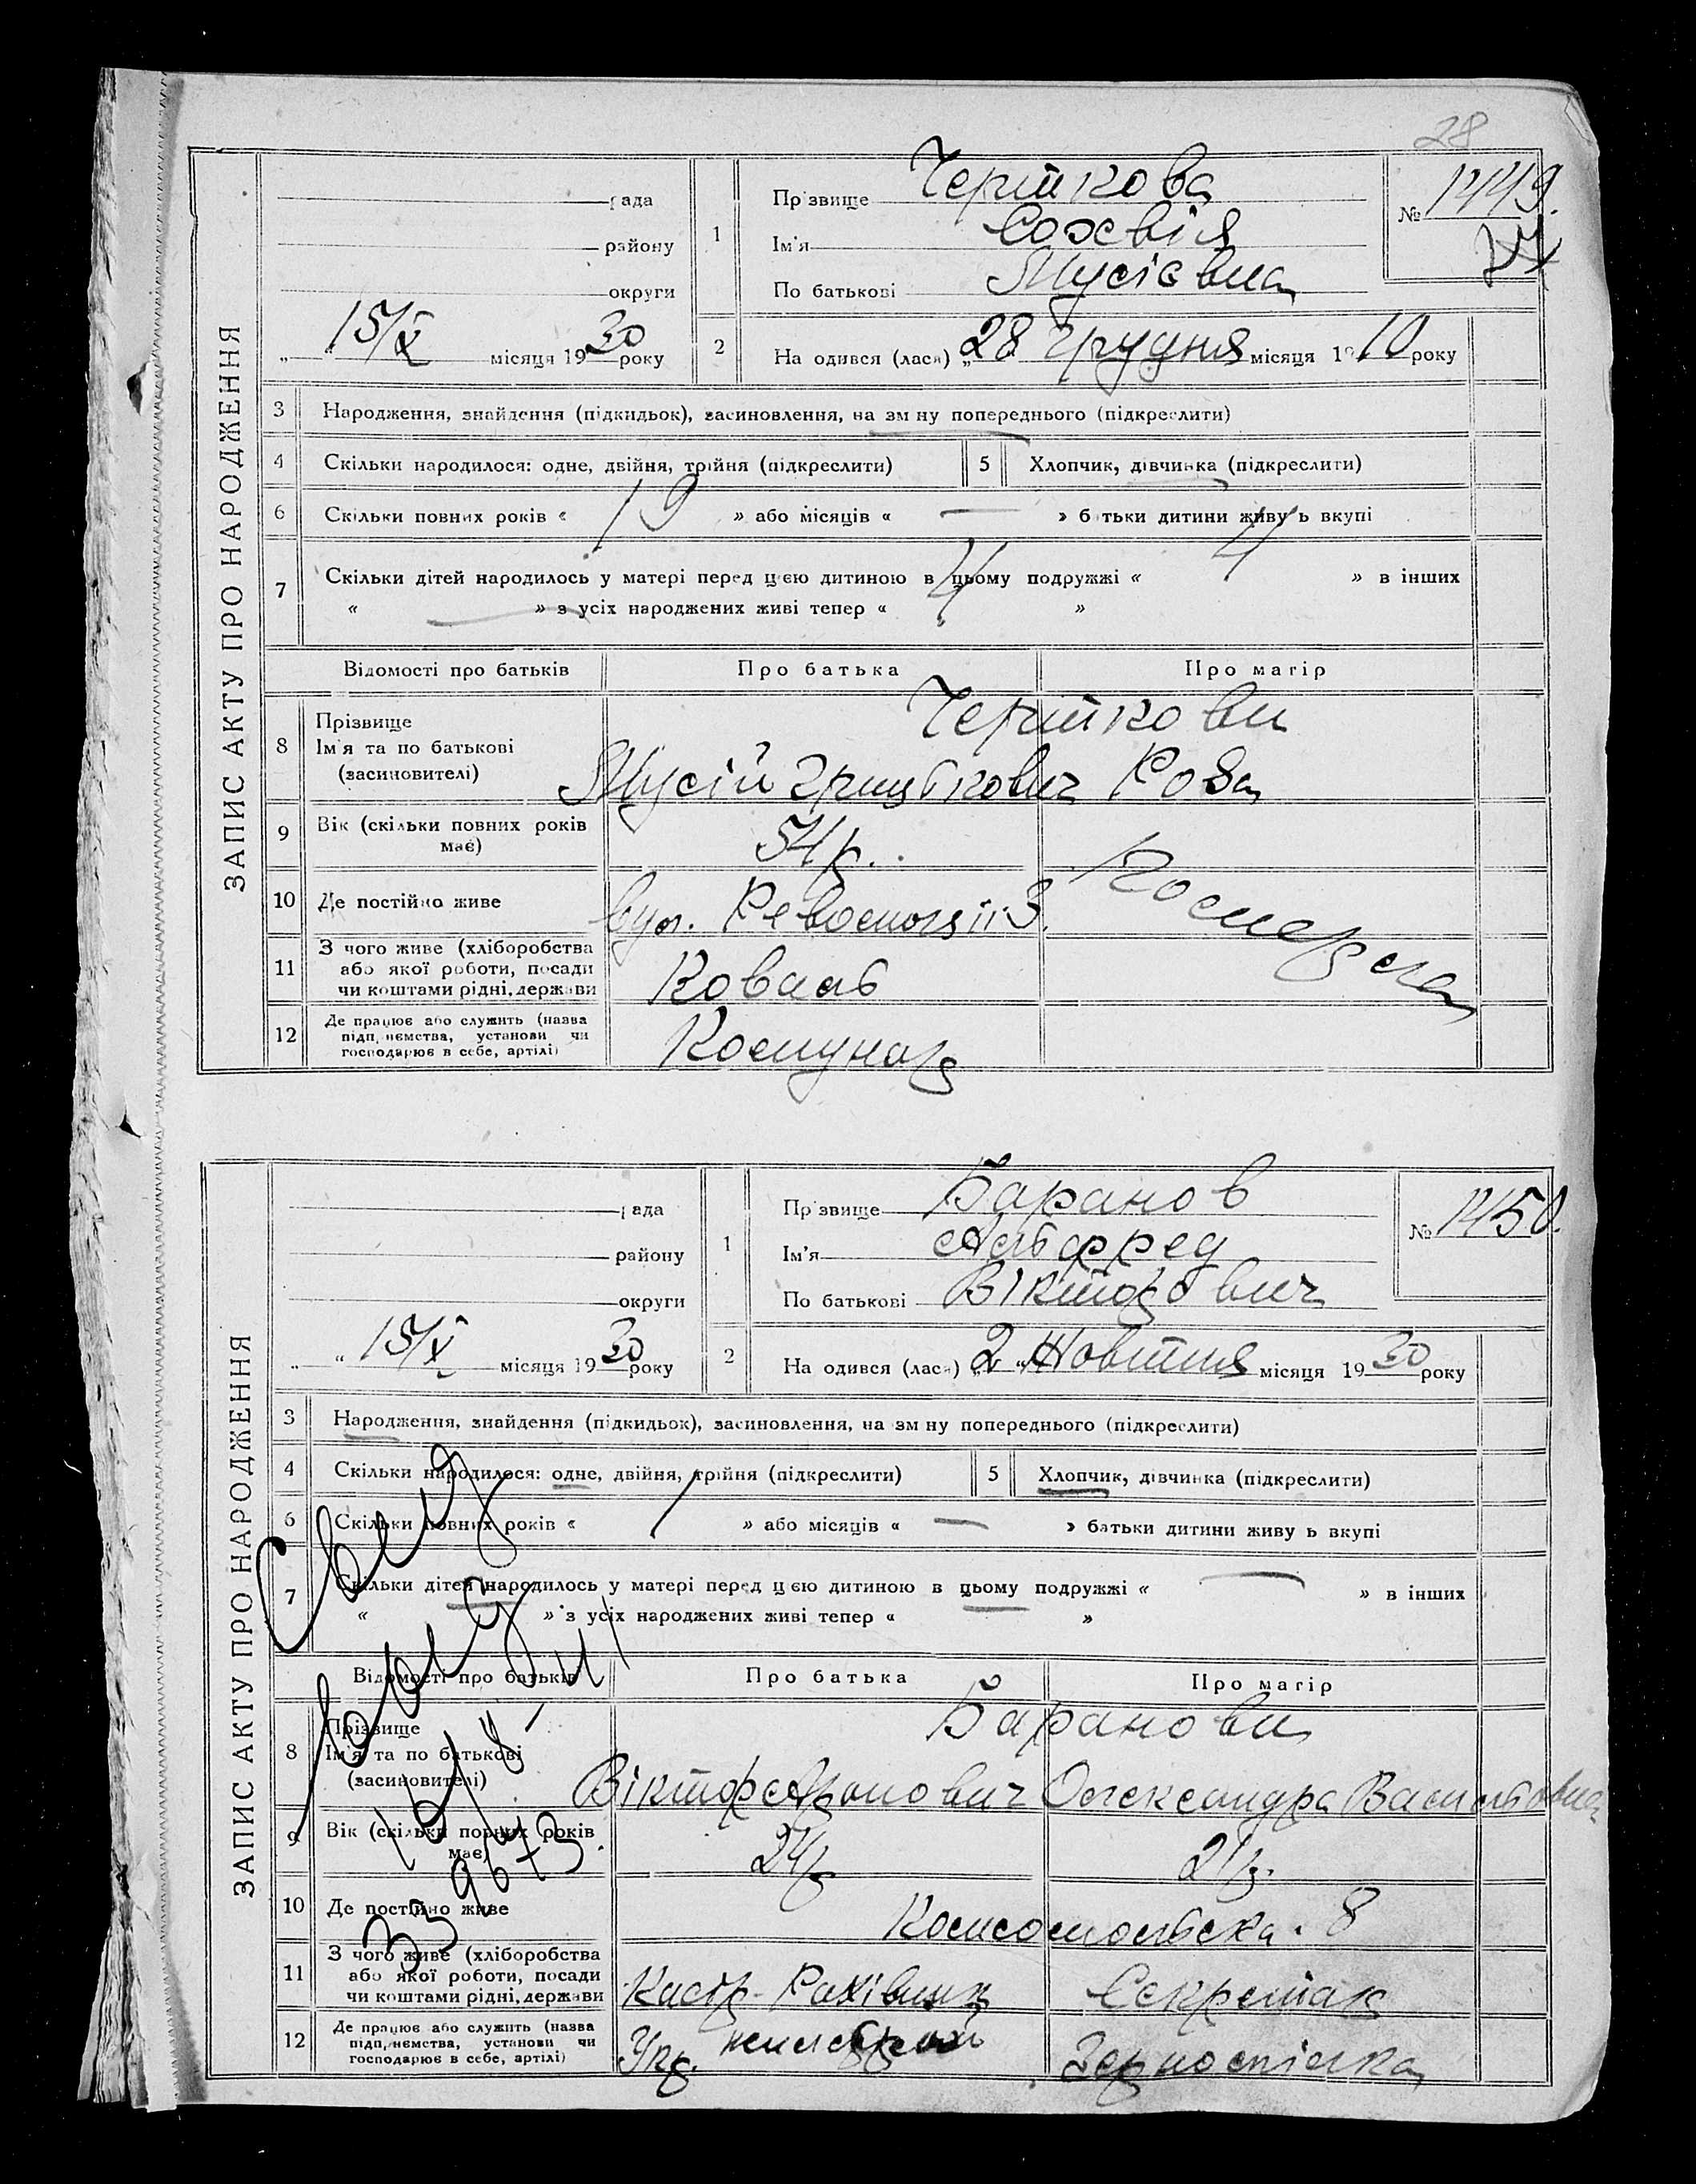 28
ЗАПИС АКТУ ПРО НАРОДЖЕННЯ
рада
району
округи
„ “ 15/X місяця 1930 року
1
Прізвище Черткова
Ім'я Софвія
По батькові Мусієвна
№ 1449.
2
На одився (лася) „28 Грудня місяця 1910 року
3 Народження, знайдення (підкидьок), засиновлення, на зм ну попереднього (підкреслити)
4 Скільки народилося: одне, двійня, трійня (підкреслити)
5 Хлопчик, дівчинка (підкреслити)
6 Скільки повних років « 19 » або місяців « — » б тьки дитини живу ь вкупі
7 Скільки дітей народилось у матері перед цією дитиною в цьому подружжі « 4 » в інших
« — » з усіх народжених живі тепер « 4 »
Відомості про батьків Про батька Про матір
8 Прізвище
Ім'я та по батькові
(засиновителі)
Черткови
Мусій Грицькович Роза
9 Вік (скільки повних років
має)
54 р.
10 Де постійно живе
вул. Революції 3.
11 З чого живе (хліборобства
або якої роботи, посади
чи коштами рідні, держави
Коваль
12 Де працює або служить (назва
підприємства, установи чи
господарює в себе, артілі)
Комунар
Померла
ЗАПИС АКТУ ПРО НАРОДЖЕННЯ
рада
району
округи
„ “ 15/X місяця 1930 року
1
Пр звище Баранов
Ім'я Альфред
По батькові Вікторович
№ 1450.
2
На одився (лася) „2 “ Жовтня місяця 1930 року
3 Народження, знайдення (підкидьок), засиновлення, на зм ну попереднього (підкреслити)
4 Скільки народилося: одне, двійня, трійня (підкреслити)
5 Хлопчик, дівчинка (підкреслити)
6 Скільки повних років « 1 » або місяців « — » батьки дитини живу ь вкупі
7 Скільки дітей народилось у матері перед цією дитиною в цьому подружжі « — » в інших
« » з усіх народжених живі тепер « »
Відомості про батьків Про батька Про матір
8 Прізвище
Ім'я та по батькові
(засиновителі)
Баранови
Віктор Аронович Олександра Васильовна
9 Вік (скільки повних років
має)
24 р 21 р.
10 Де постійно живе
Комсомольська. 8
11 З чого живе (хліборобства
або якої роботи, посади
чи коштами рідні, держави
Касір-Рахівник Секретар
12 Де працює або служить (назва
підприємства, установи чи
господарює в себе, артілі)
Укр. Зерноспілка
Свид
выд